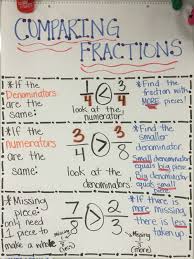 COMPARING
FRACTIONS
*If the
Denominators
are the
same:
1/4 < 3/4
look at the
numerator
*Find the
fraction with
MORE pieces!
*If the
numerators
are the
same:
3/4 > 3/8
look at the
denominators
*Find the
smaller
denominator
Small denominator
equals big piece
Big denominator
equals small
piece
*Missing
piece:
only need
1 piece to
make a whole
7/8 > 2/3
Missing
Missing
*If there is
more missing,
there is less
taken up